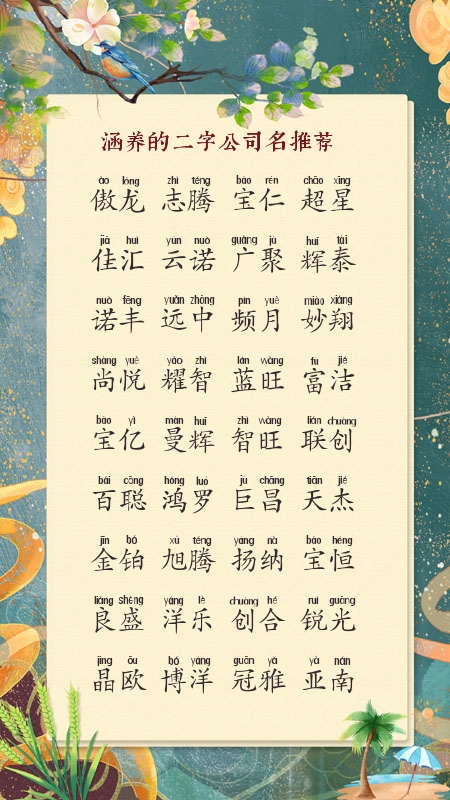 涵养的二字公司名推荐
ào lóng zhì téng bǎo rén chāo xīng
傲龙 志腾 宝仁 超星
jiā huì yún nuò guǎng jù huī tài
佳汇 云诺 广聚 辉泰
nuò fēng yuǎn zhōng pín yuè miào xiáng
诺丰 远中 频月 妙翔
shàng yuè yào zhì lán wàng fù jié
尚悦 耀智 蓝旺 富洁
bǎo yì màn huī zhì wàng lián chuàng
宝亿 曼辉 智旺 联创
bǎi cōng hóng luó jù chāng tiān jié
百聪 鸿罗 巨昌 天杰
jīn bó xù téng yáng nà bǎo héng
金铂 旭腾 扬纳 宝恒
liáng shèng yáng lè chuàng hé ruì guāng
良盛 洋乐 创合 锐光
jīng ōu bó yáng guān yǎ yà nán
晶欧 博洋 冠雅 亚南